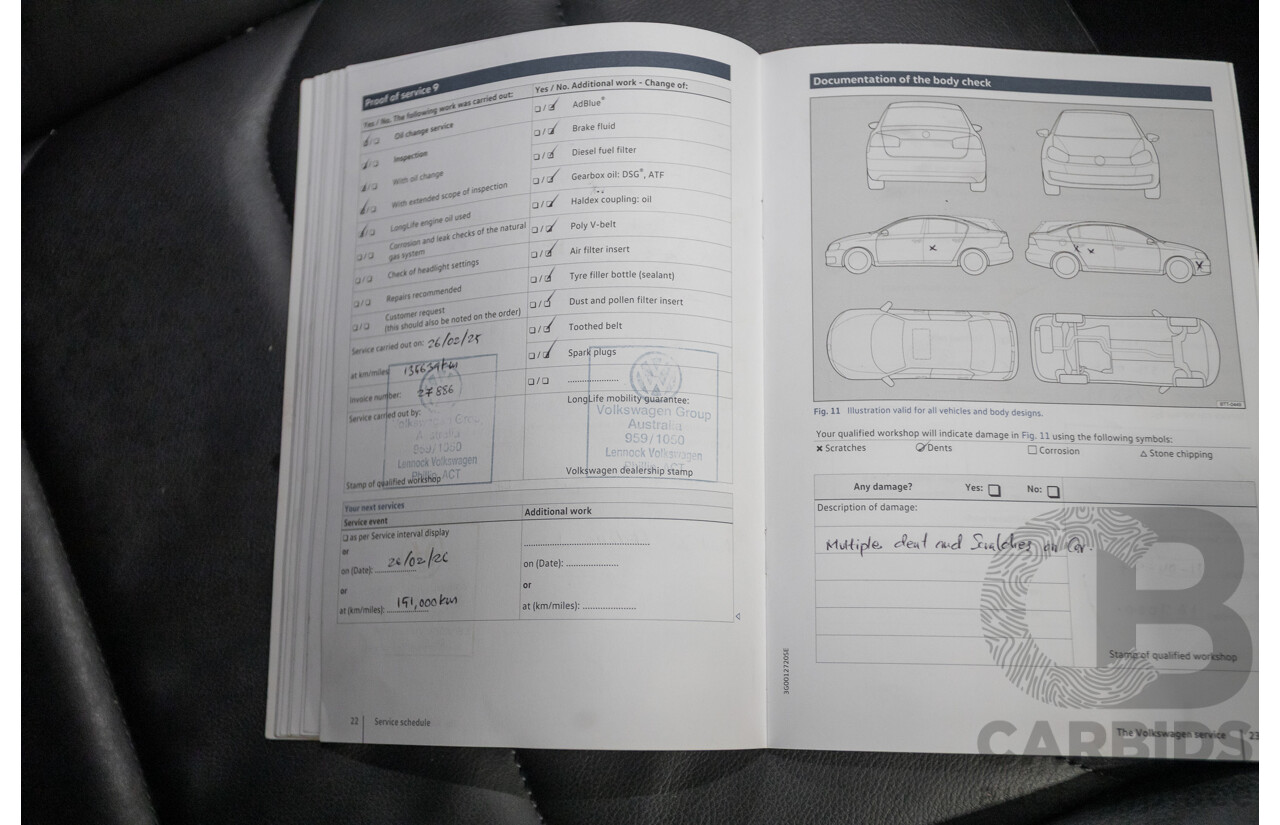 Proof of service 9
Yes / No. The following work was carried out:
Oil change service
Inspection
With oil change
With extended scope of inspection
LongLife engine oil used
Corrosion and leak checks of the natural
gas system
Check of headlight settings
Repairs recommended
Customer request
(this should also be noted on the order)
Service carried out on: 26/02/25
at km/miles:
Invoice number: 27886
Service carried out by:
Volkswagen Group
Australia
959/1050
Lennock Volkswagen
Phillip ACT
Stamp of qualified workshop
Yes / No. Additional work - Change of:
AdBlue®
Brake fluid
Diesel fuel filter
Gearbox oil: DSG®, ATF
Haldex coupling: oil
Poly V-belt
Air filter insert
Tyre filler bottle (sealant)
Dust and pollen filter insert
Toothed belt
Spark plugs
LongLife mobility guarantee:
Volkswagen Group
Australia
959/1050
Lennock Volkswagen
Phillip ACT
Volkswagen dealership stamp
Your next services
Service event
as per Service interval display
or
on (Date): 26/02/26
or
at (km/miles): 151,000km
Additional work
on (Date):
or
at (km/miles):
22 Service schedule
Documentation of the body check
Fig. 11 Illustration valid for all vehicles and body designs.
Your qualified workshop will indicate damage in Fig. 11 using the following symbols:
Scratches Dents Corrosion Stone chipping
Any damage? Yes: No:
Description of damage:
Multiple dent and Scratches on Car.
Stamp of qualified workshop
3G0012720SE
The Volkswagen service 23
CARBIDS